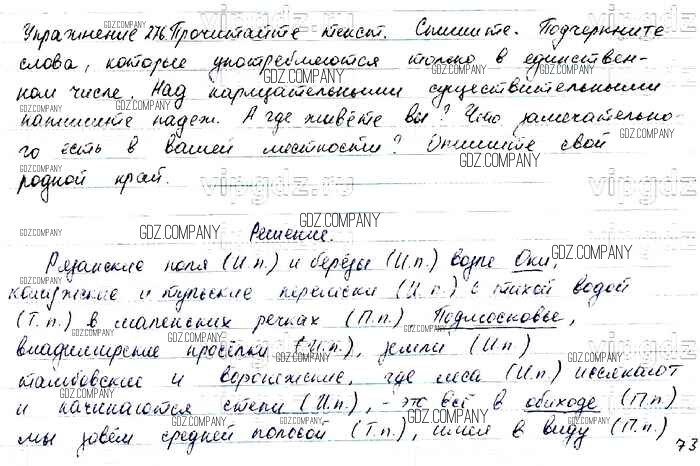 Упражнение 276. Прочитайте текст. Спишите. Подчеркните
слова, которые употребляются только в единствен-
ном числе. Над нарицательными существительными
напишите падеж. А где живёте вы? Что замечательно-
го есть в вашей местности? Опишите свой
родной край.
Решение.
Рязанские поля (И.п.) и берёзы (И.п.) возле Оки,
калужские и тульские перелески (И.п.) с тихой водой
(Т.п.) в маленьких речках (П.п.) Подмосковье,
владимирские просёлки (И.п.), земли (И.п)
тамбовские и воронежские, где леса (И.п) иссякают
и начинаются степи (И.п.), - это всё в обиходе (П.п)
мы зовём средней полосой (Т.п.), имея в виду (П.п.)
73
GDZ.COMPANY
vipgdz.ru